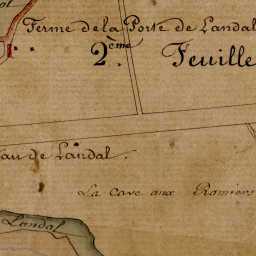 Ferme de la Porte de Landal
2.ème Feuille
au de Landal.
La Cave aux Ramiers
Landal